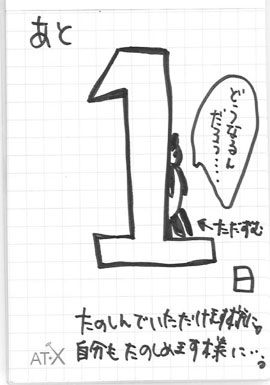 あと
1
どうなるん
だろう....
←たたずむ
日
たのしんでいただけます様に。
自分もたのしめます様に…。
AT-X